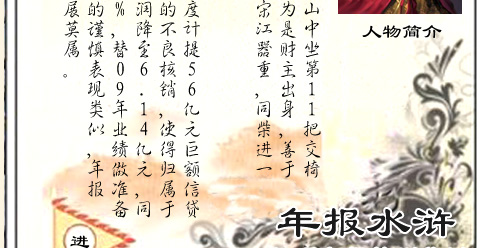 人物简介
山中坐第11把交椅
为是财主出身,善于
宋江器重,同柴进一
度计提56亿元巨额信贷
的不良核销,使得归属于
润降至6.14亿元,同
%,替09年业绩做准备
的谨慎表现类似,年报
展莫属。
年报水浒
进